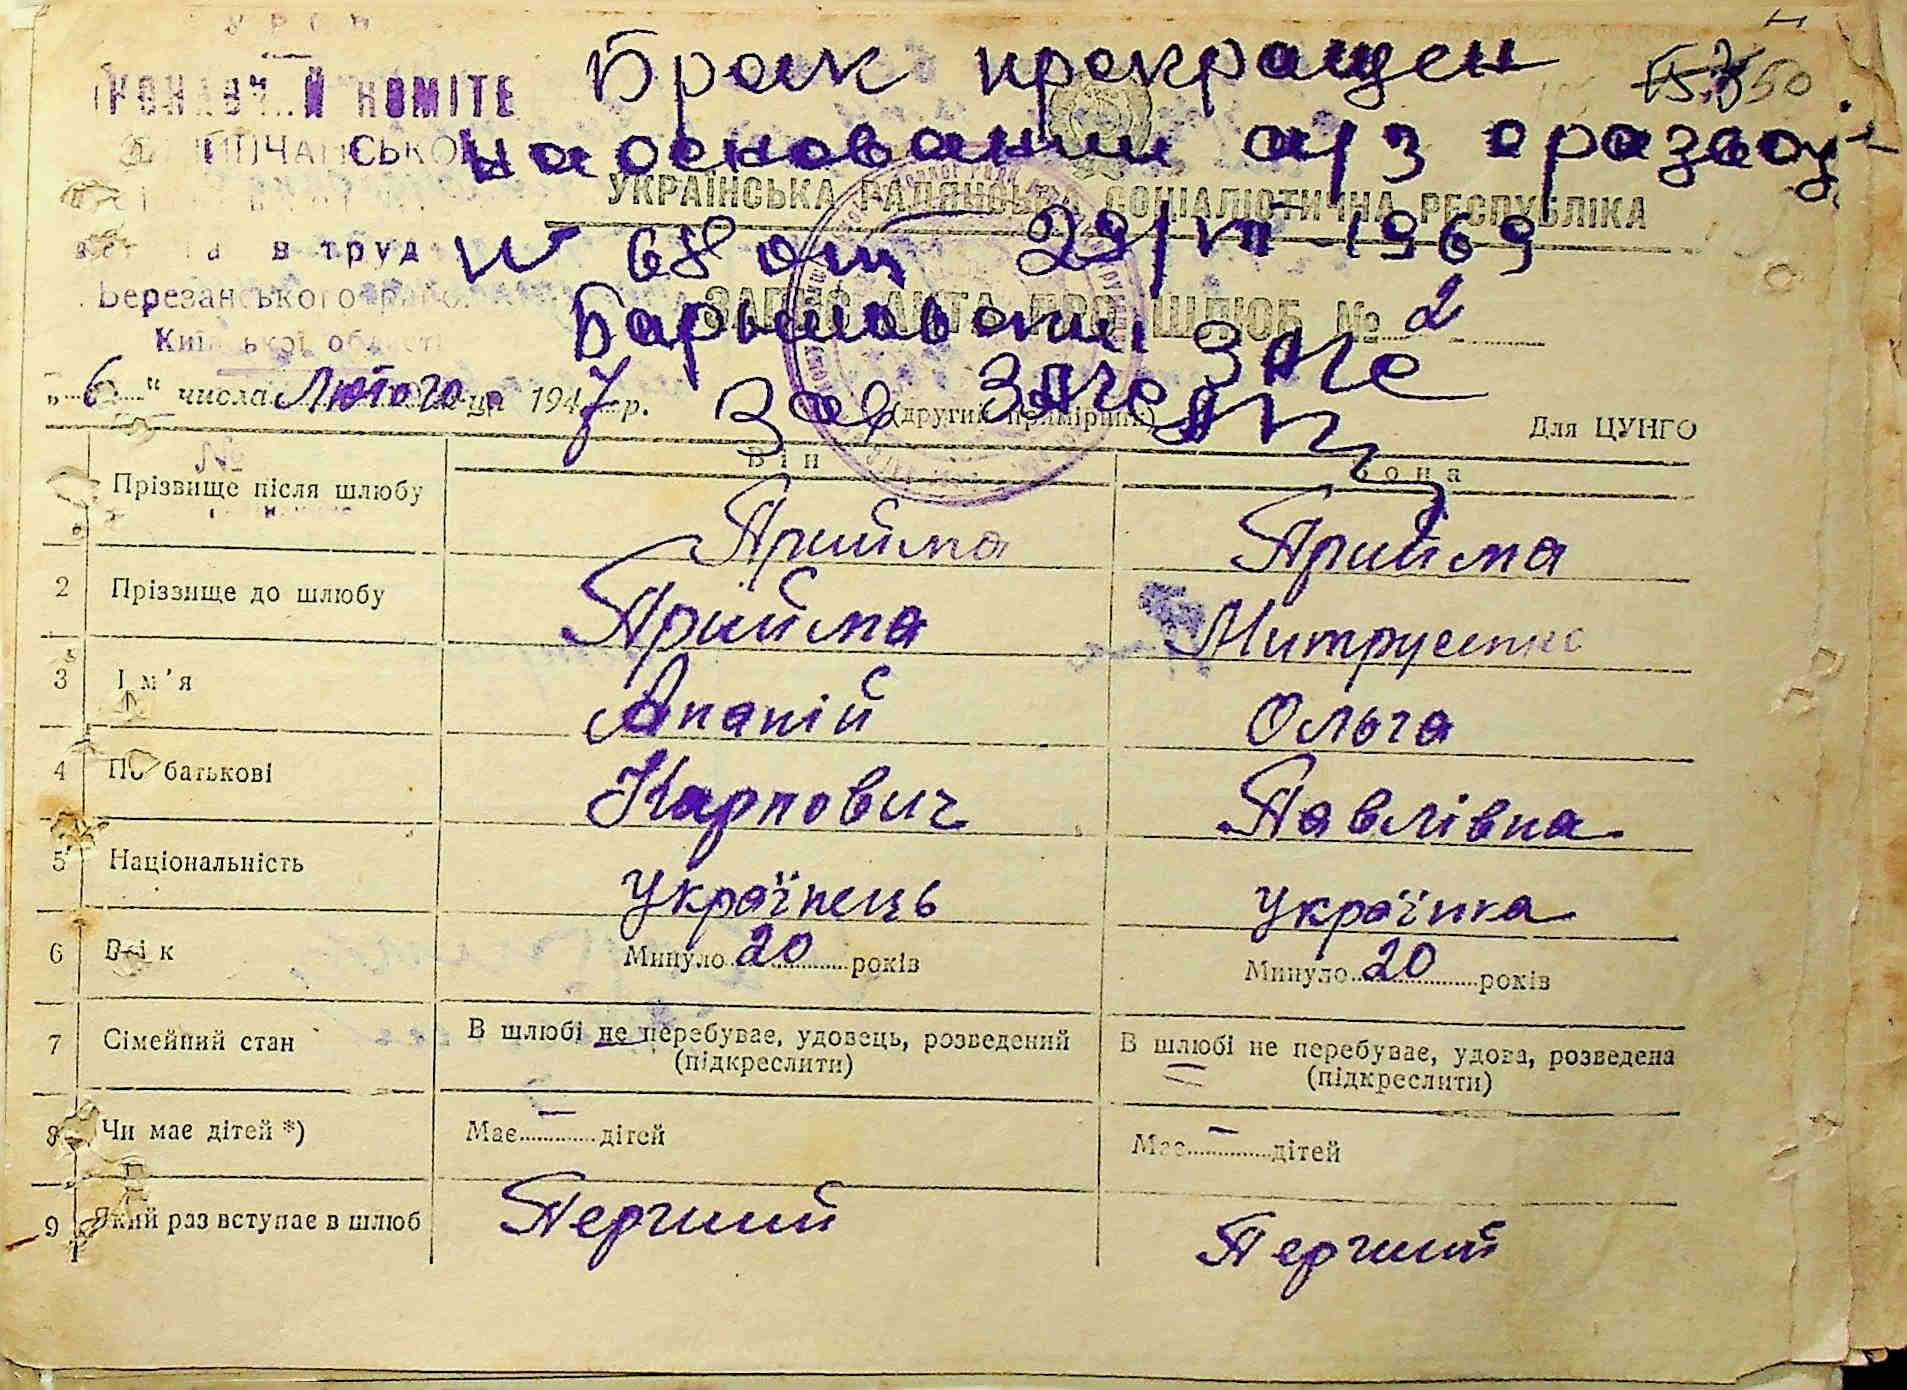 УРСР
КОМІТЕ
Брак прекращен
на основании а/з о разводе
УКРАЇНСЬКА РАДЯНСЬКА СОЦІАЛІСТИЧНА РЕСПУБЛІКА
в труд
N 68 от 29/VII-1969
Березанського
ЗАПИС АКТА ПРО ШЛЮБ № 2
Київської області
ЗАГС
„6“ числа Лютого м-ця 1947 р.
Зав ЗАГС
(другий примірник)
Для ЦУНГО
Він Вона
Прізвище після шлюбу Прийма Прийма
2 Прізвище до шлюбу Прийма Митрусенко
3 Ім'я Ананій Ольга
4 По батькові Карпович Павлівна
5 Національність Українець Українка
6 Вік Минуло 20 років Минуло 20 років
7 Сімейний стан В шлюбі не перебуває, удовець, розведений (підкреслити) В шлюбі не перебуває, удова, розведена (підкреслити)
8 Чи має дітей *) Має — дітей Має — дітей
9 Який раз вступає в шлюб Перший Перший